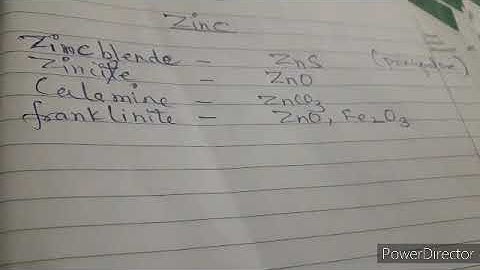 Zinc
Zincblende - ZnS
Zincite - ZnO
Calamine - ZnCO3
franklinite - ZnO, Fe2O3
PowerDirector